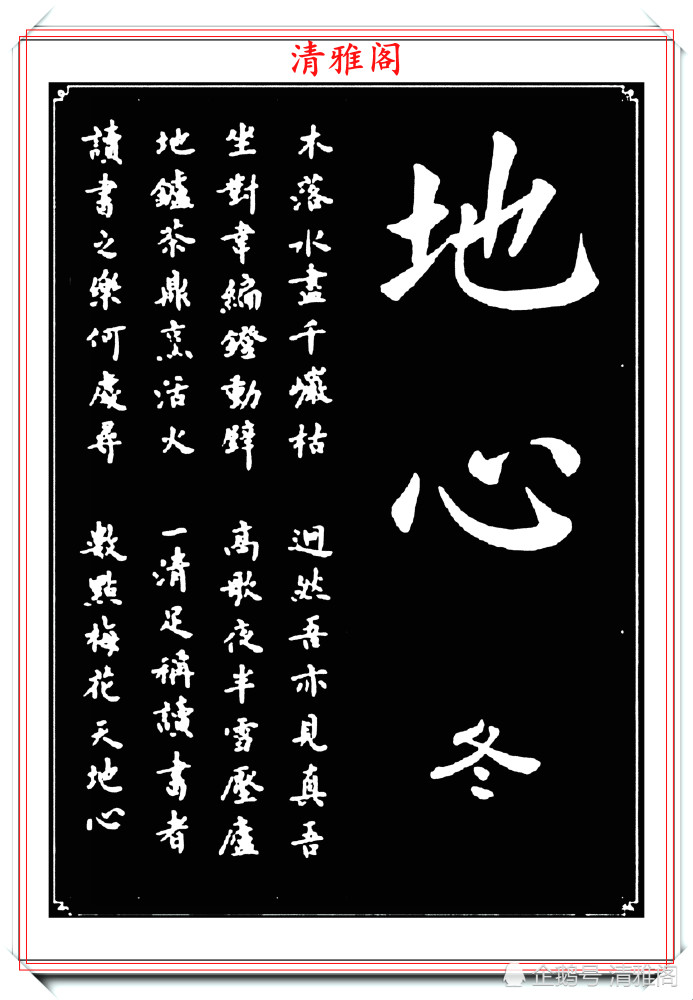 清雅阁
地心
冬
木落水盡千巖枯
迥然吾亦見真吾
坐對韋編鐙動壁
高歌夜半雪壓廬
地鑪茶鼎烹活火
一清足稱讀書者
讀書之樂何處尋
數點梅花天地心
企鹅号 清雅阁